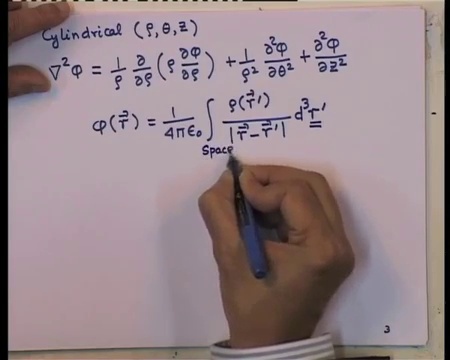 Cylindrical (ρ, θ, z)
∇²φ = 1/ρ ∂/∂ρ (ρ ∂φ/∂ρ) + 1/ρ² ∂²φ/∂θ² + ∂²φ/∂z²
φ(r⃗) = 1/4πϵ₀ ∫ ρ(r⃗')/|r⃗ − r⃗'| d³r'
Space
3